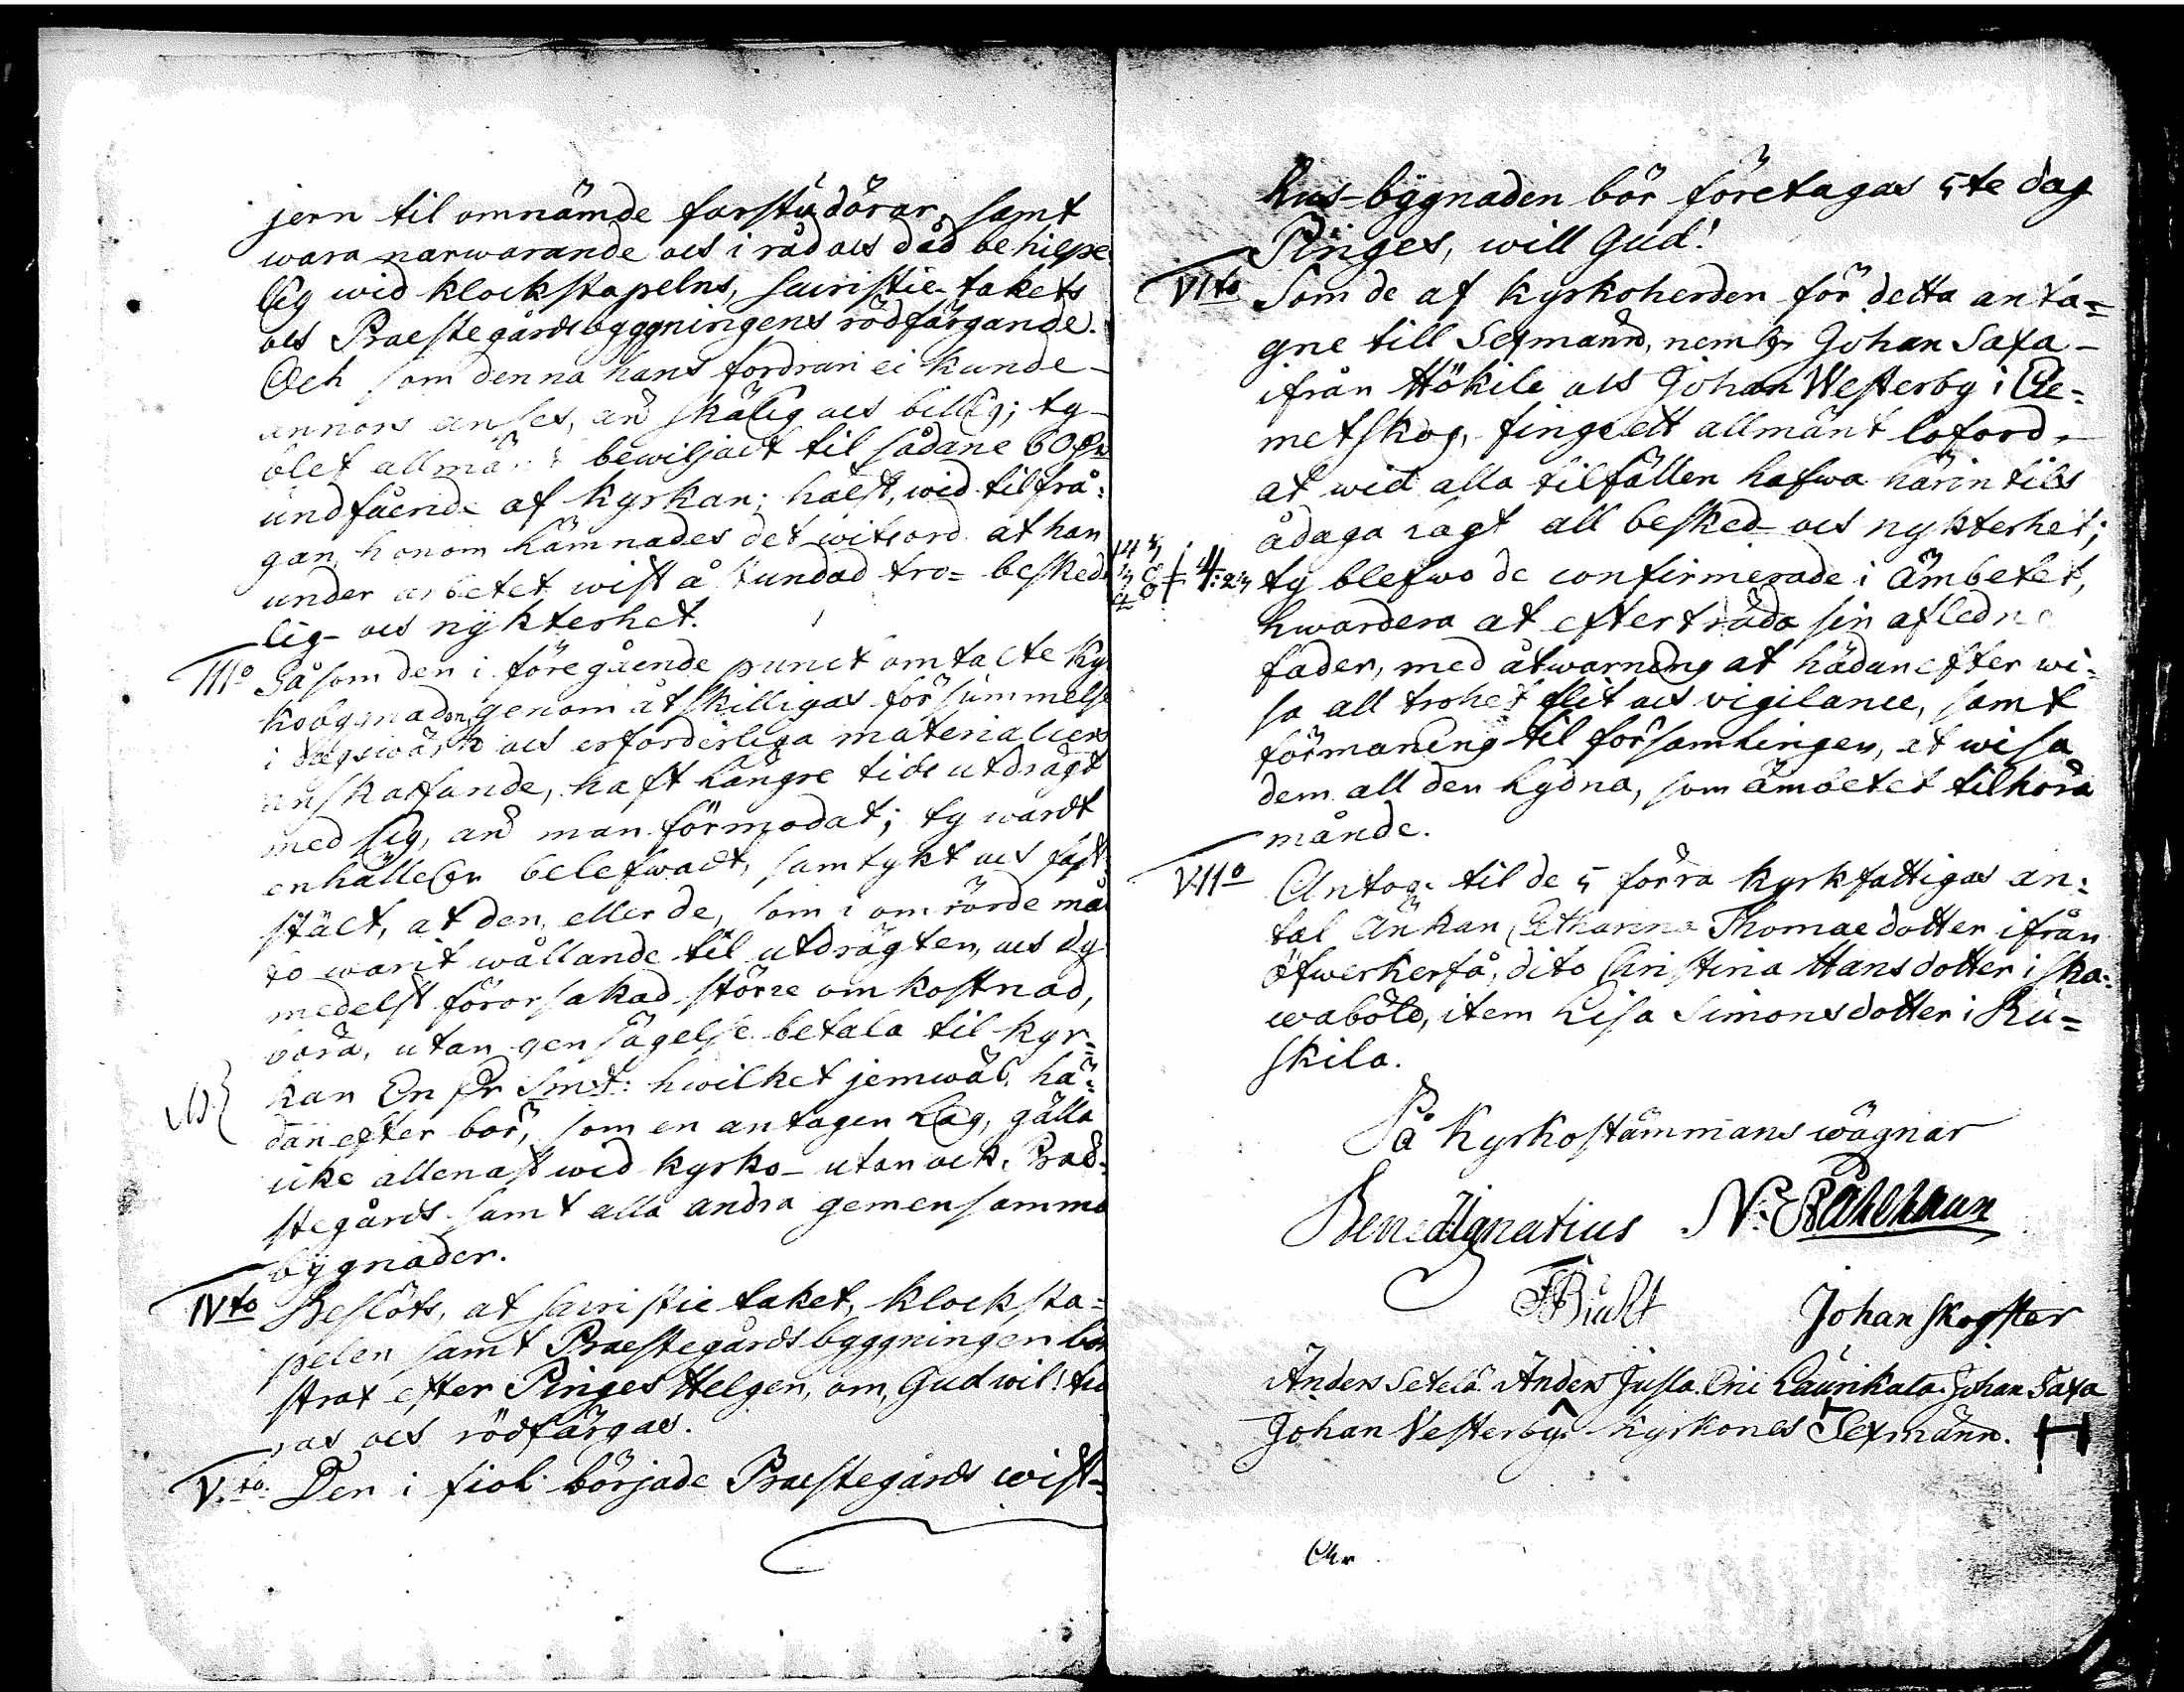 jern til omnämde farstudörar, samt
wara narwarande ock i råd ock dåd behielpe
lig wid klockstapelns, sacristie-takets
ock Praestegårdsbyggningens rödfärgande.
Och som denna hans fordran ei kunde
annors anses, än skälig ock billig; ty
blef allmänt bewiljadt til sådane 60
undfående af kyrkan; hälst, wid tilfrå-
gan, honom lämnades det witsord at han
under arbetet wist åstundad tro- besked-
lig- ock nykterhet.
III:o Såsom den i föregående punct omtalte Kyr
kobygnaden, genom åtskilligas försummelse
i dagswärk ock erforderliga materialiers
anskaffande, haft längre tids utdrägt
med sig, än man förmodat; ty wardt
enhälleligen belefwadt, samtykt ock fast-
stält, at den, eller de, som i omrörde må
to warit wållande til utdrägten, ock dy
medelst förorsakad större omkostnad,
böra, utan gensägelse betala til kyr-
kan En Dr Smt: hwilket jemwäl hä-
danefter bör, som en antagen Lag, gälla
icke allenast wid kyrko- utan ock Prae-
stegårds samt alla andra gemensamma
bygnader.
IVto Beslöts, at sacristie taket, klocksta-
pelen samt Praestegårdsbyggningen bör
strax efter Pinges Helgen, om Gud wil! tiä
ras ock rödfärgas.
V.to Den i fiol började Praestegårds wist-
hus-byggnaden bör företagas 5te dag
Pinges, will Gud!
VIto Som de af Kyrkoherden för detta anta-
gne till Sexmänn, nembl. Johan Saxa
ifrån Hökile ock Johan Westerby i Cle-
metskog, finge ett allmänt loford,
at wid alla tilfällen hafwa härintils
ådagalagt all besked- ock nykterhet;
ty blefwo de confirmerade i Ämbetet,
hwardera at efterträda sin afledne
fader, med åtwarning at hädanefter wi-
sa all trohet flit ock vigilance, samt
förmaning til församlingen, at wisa
dem all den lydna, som ämbetet tilhöra
månde.
VII:o Antogs til de 5 förra kyrkfattigas an-
tal Änkan Catharina Thomaedotter ifrån
öfwerkerså, dito Christina Hansdotter i Ska-
waböle, item Lisa Simonsdotter i Ru-
skila.
På Kyrkostämmans wägnar
Bened Ignatius N:
Johan Skogster
Anders Setelä Anders Jusla. Eric Laurikala. Johan Saxa
Johan Vesterby. Kyrkones Sexmänn.